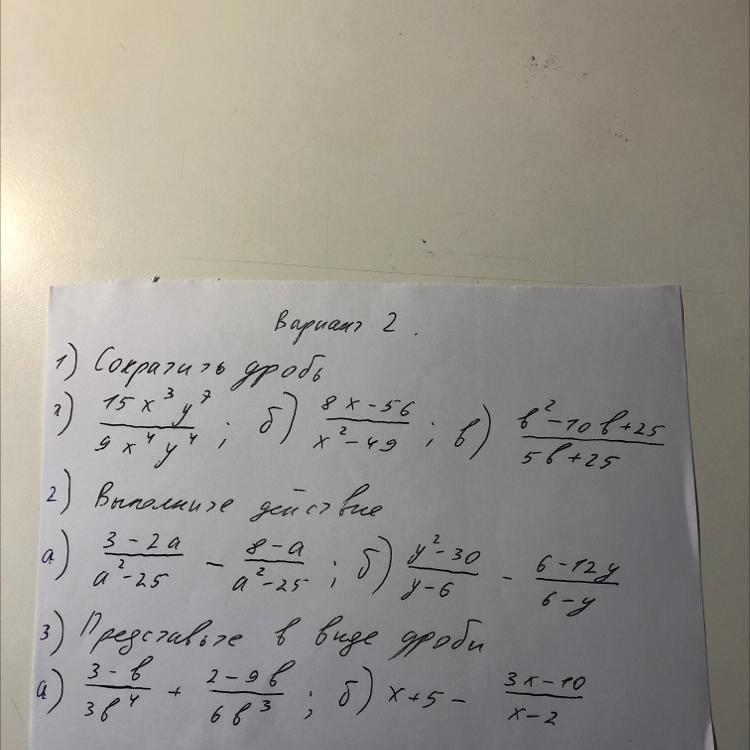 Вариант 2.
1) Сократить дробь
а) 15x³y⁷/9x⁴y⁴; б) 8x-56/x²-49; в) b²-10b+25/5b+25
2) Выполните действие
а) 3-2a/a²-25 - 8-a/a²-25; б) y²-30/y-6 - 6-12y/6-y
3) Представьте в виде дроби
а) 3-b/3b⁴ + 2-9b/6b³; б) x+5- 3x-10/x-2